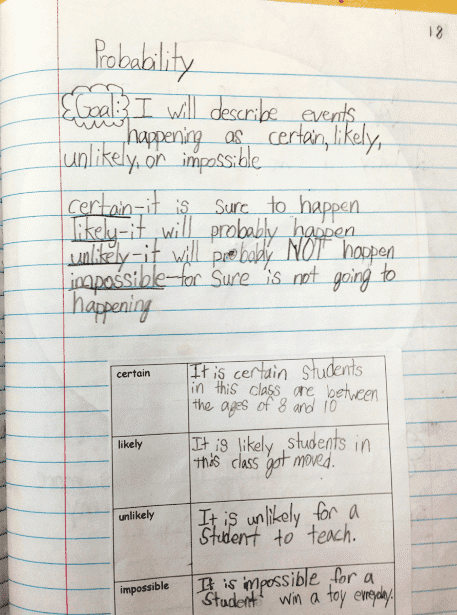 18
Probability
Goal: I will describe events
happening as certain, likely,
unlikely, or impossible
certain-it is sure to happen
likely-it will probably happen
unlikely-it will probably NOT happen
impossible-for sure is not going to
happening
certain
It is certain students
in this class are between
the ages of 8 and 10
likely
It is likely students in
this class got moved.
unlikely
It is unlikely for a
student to teach.
impossible
It is impossible for a
student win a toy everyday.